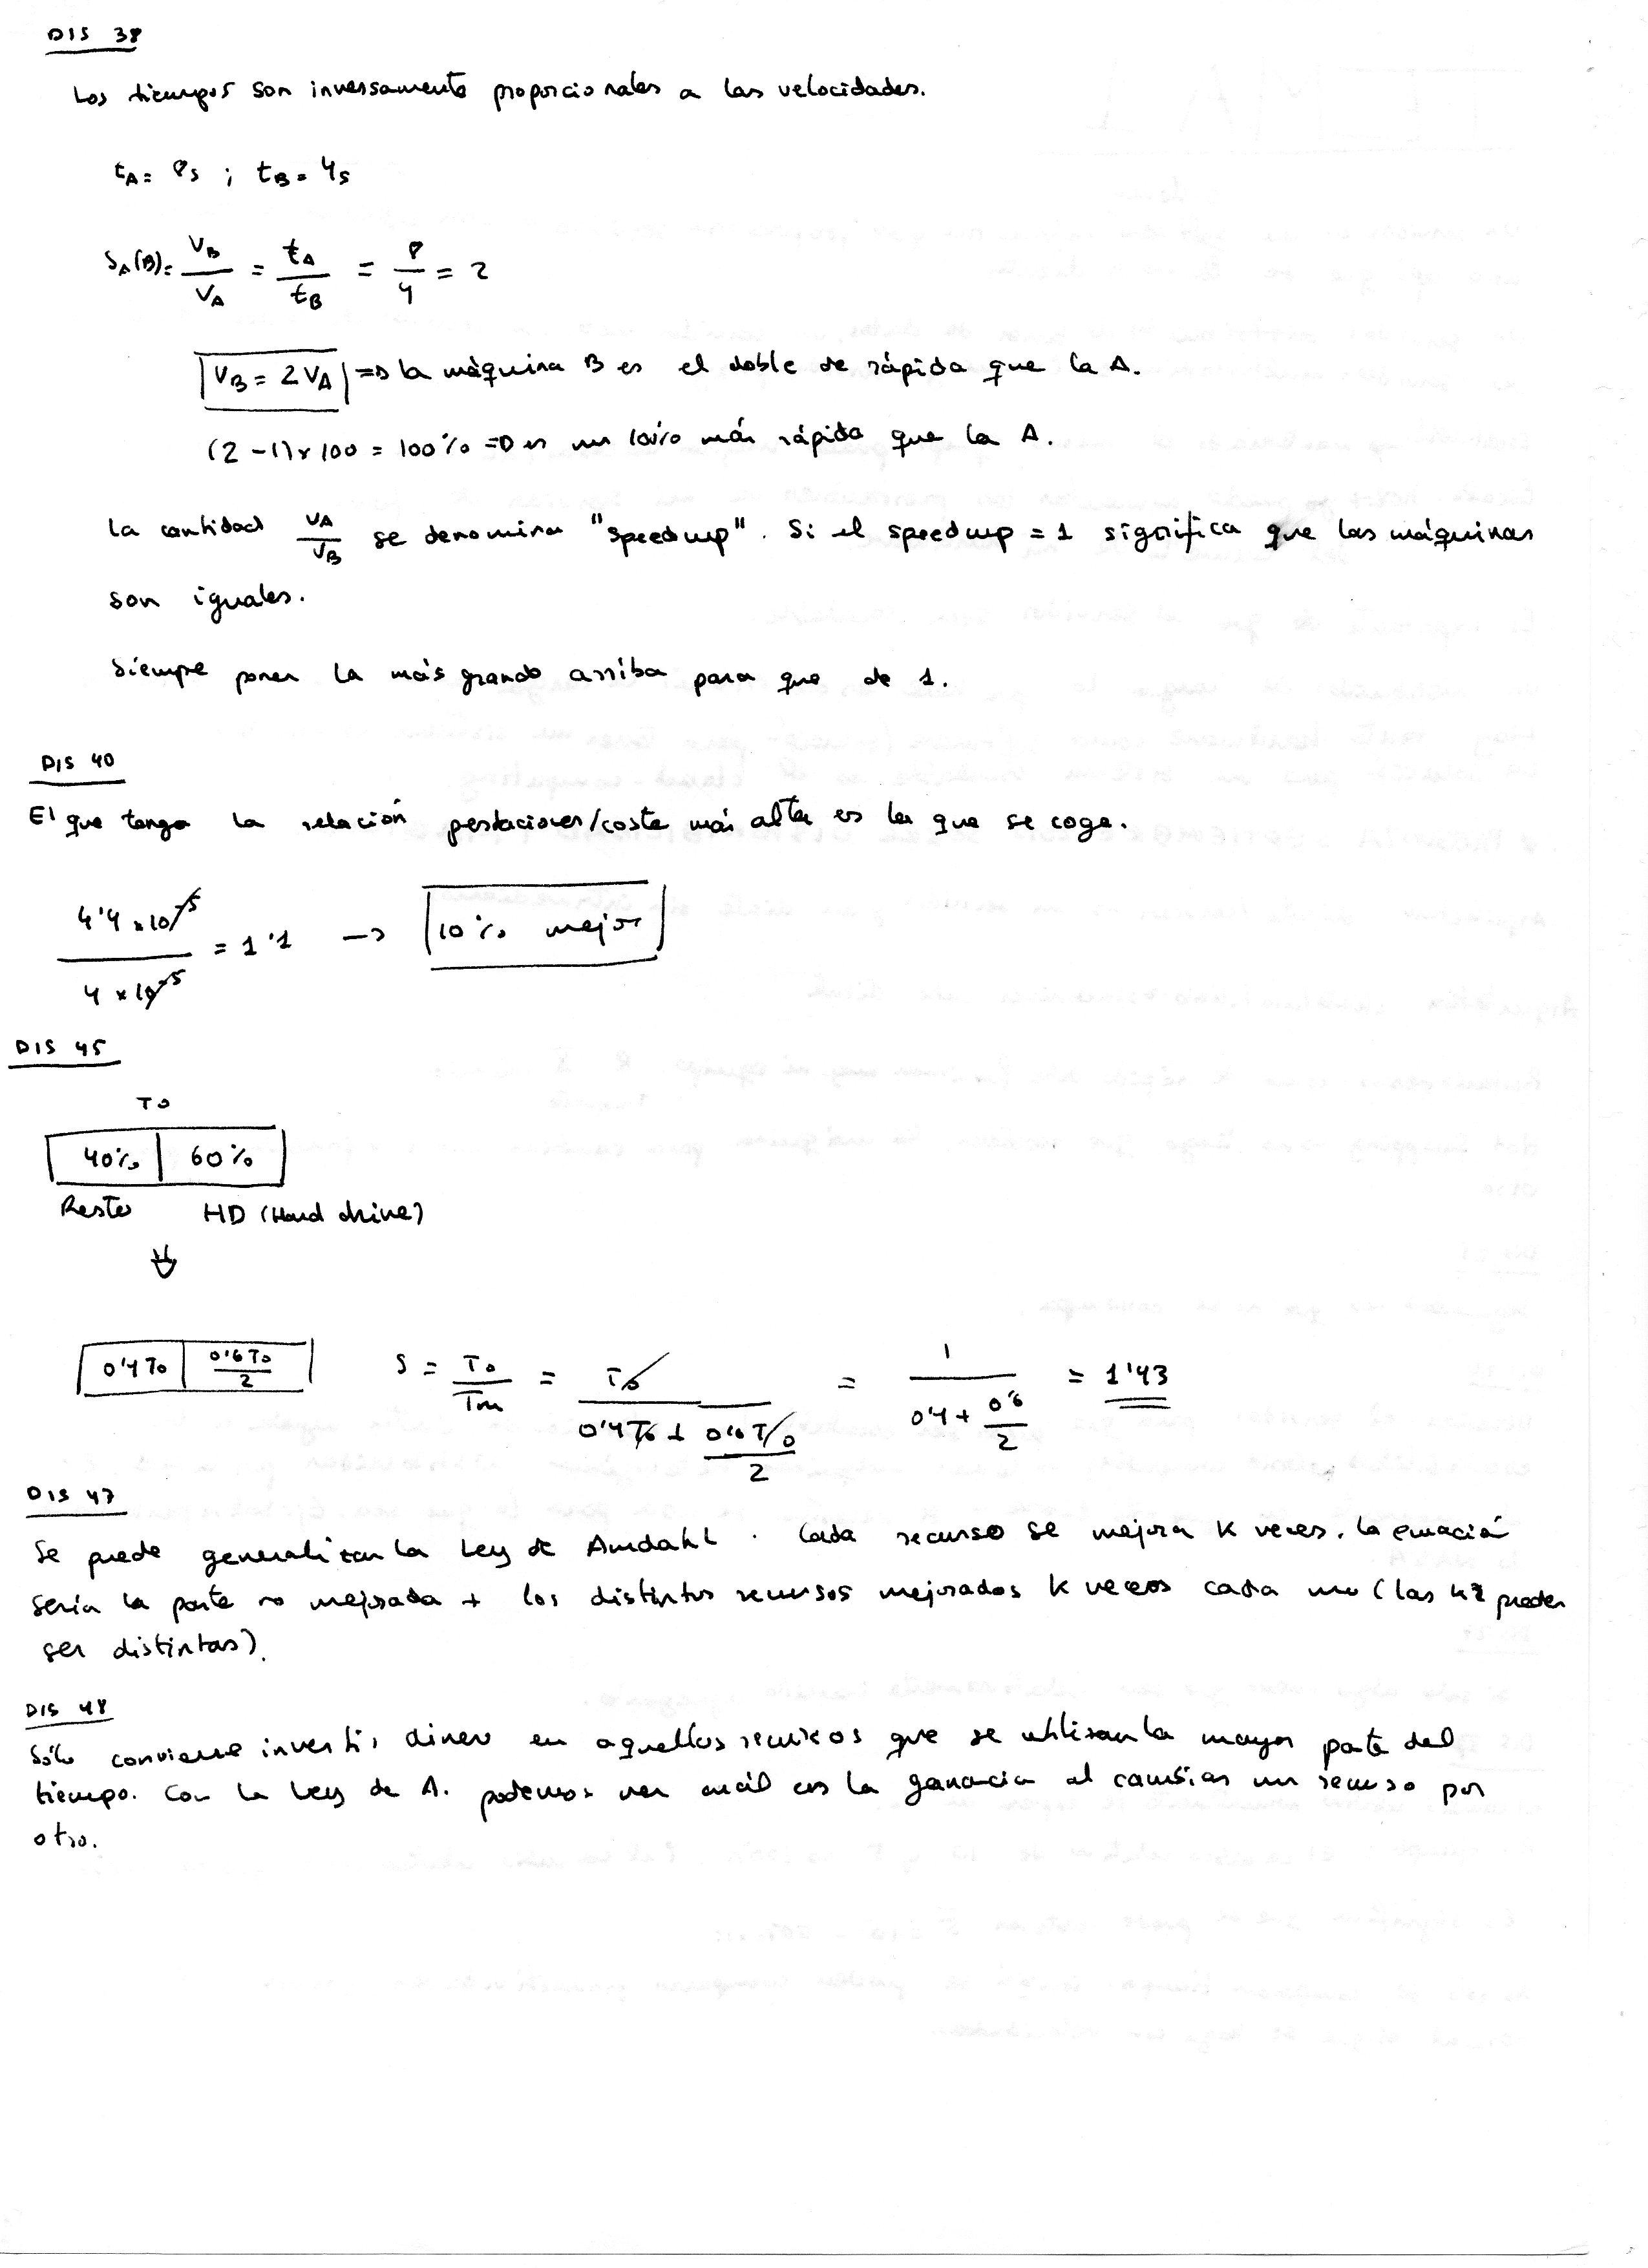 DIS 38
Los tiempos son inversamente proporcionales a las velocidades.
tA = 8s ; tB = 4s
SA(B) = VB/VA = tA/tB = 8/4 = 2
VB = 2VA => la máquina B es el doble de rápida que la A.
(2-1)x100 = 100% => es un 100% más rápida que la A.
La cantidad VA/VB se denomina "speedup". Si el speedup = 1 significa que las máquinas
son iguales.
Siempre poner la más grande arriba para que de 1.
DIS 40
El que tenga la relación prestaciones/coste más alta es la que se coge.
4'4 x 10^-5 / 4 x 10^-5 = 1'1 -> 10% mejor
DIS 45
To
40% 60%
Resto HD (Hard drive)
0'4To 0'6To/2 S = To/Tm = To/(0'4To + 0'6To/2) = 1/(0'4 + 0'6/2) = 1'43
DIS 47
Se puede generalizar la Ley de Amdahl. Cada recurso se mejora K veces, la ecuación
sería la parte no mejorada + los distintos recursos mejorados K veces cada uno (las pueden
ser distintas).
DIS 48
Sólo conviene invertir dinero en aquellos recursos que se utilizan la mayor parte del
tiempo. Con la Ley de A. podemos ver cuál es la ganancia al cambiar un recurso por
otro.